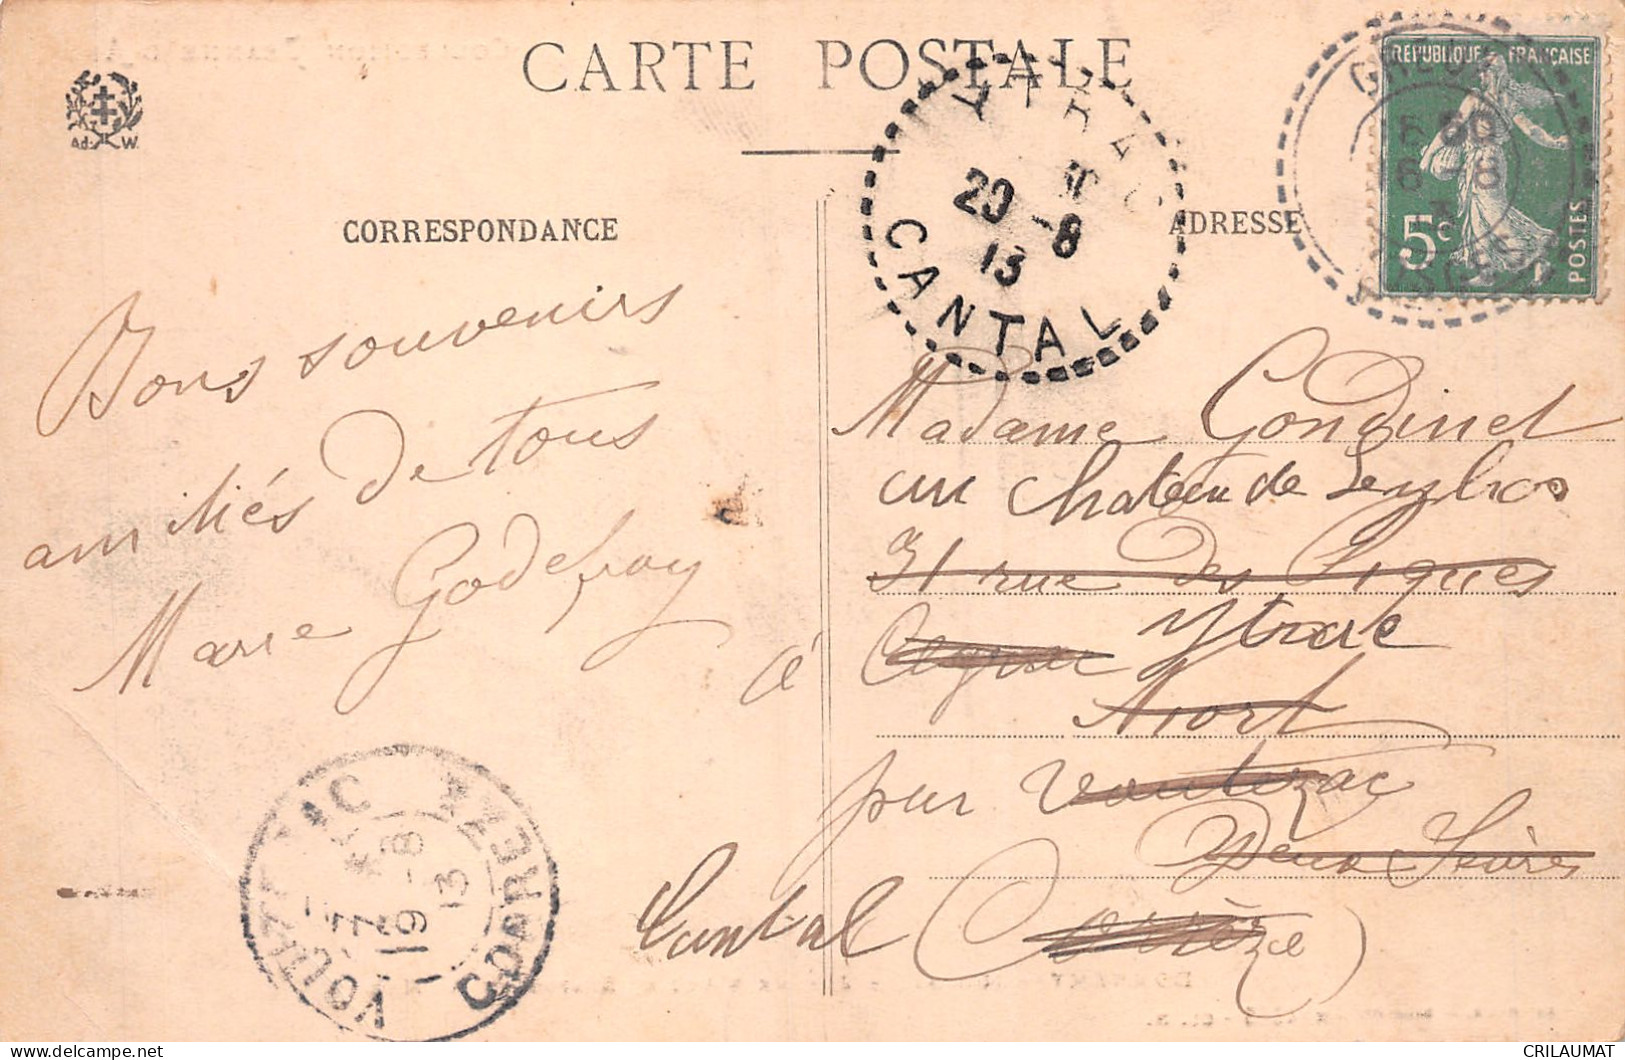 CARTE POSTALE
Ad. W.
CORRESPONDANCE
ADRESSE
REPUBLIQUE FRANÇAISE
5c
POSTES
YTRAC
20 -8
13
CANTAL
Bons souvenirs
amitiés de tous
Marie Godefroy
Madame Gondinet
au Chateau de
31 rue des Piques
à Ytrac
Niort
par Voutezac
Deux Sèvres
Cantal (Corrèze)
VOUTEZAC
CORRÈZE
19 -8
13
CRILAUMAT